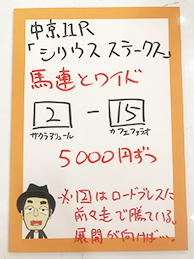 中京11R
「シリウスステークス」
馬連とワイド
2 - 15
サクラアリュール カフェファラオ
5000円ずつ
※2はロードブレスに
前々走で勝っている。
展開が向けば…。